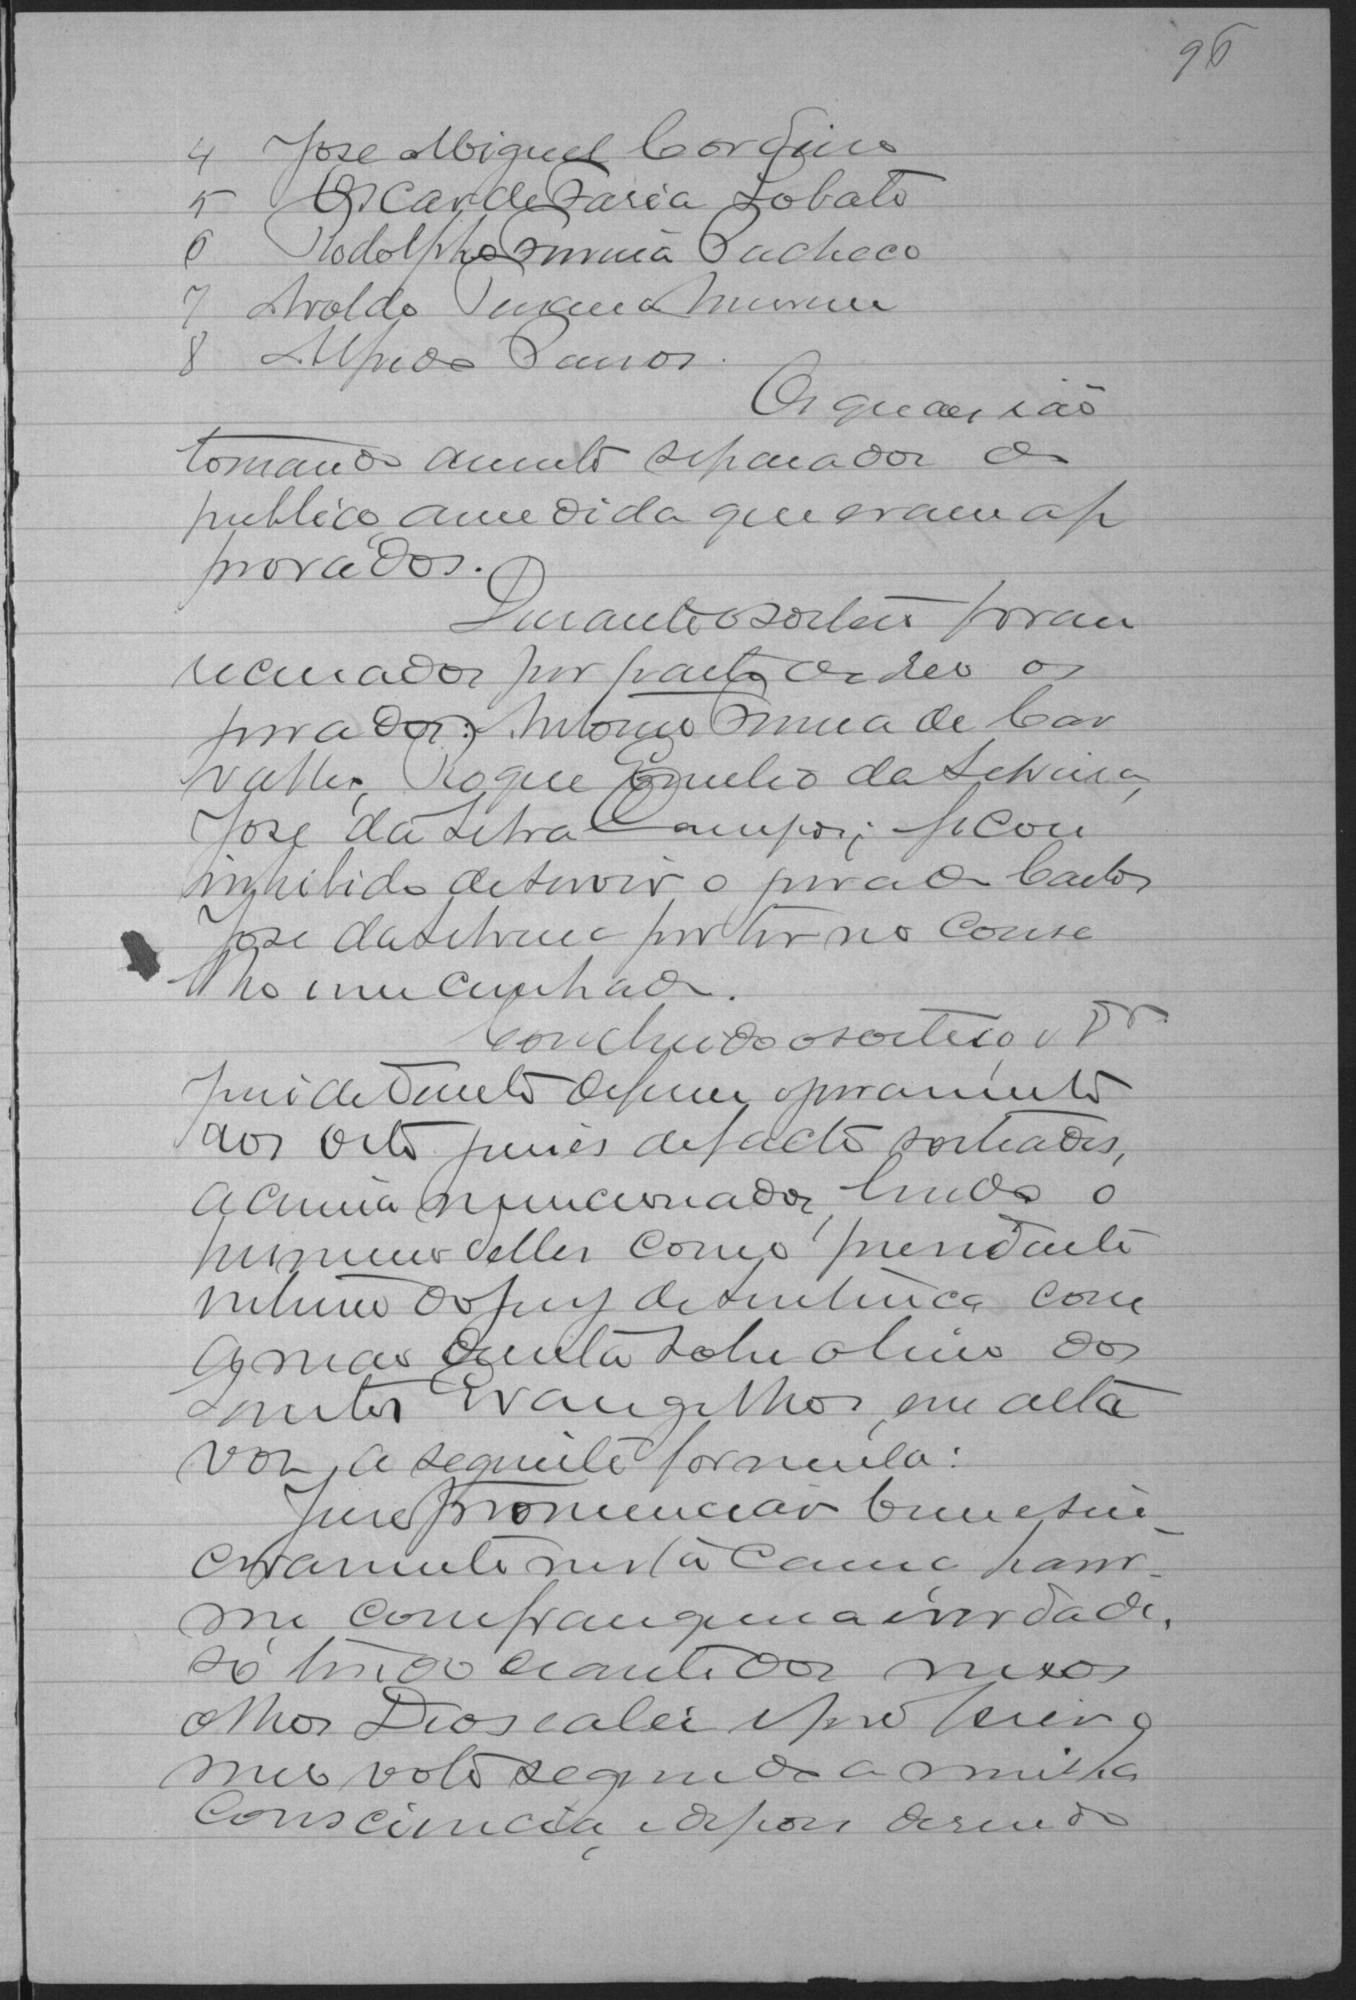 96
4 Jose Miguel Cordeiro
5 Oscar de Faria Lobato
6 Rodolpho Pacheco
7 Aroldo
8 Alfredo
Os quaes ião
tomando acento separados do
publico a medida que eram ap
provados.
Durante o sorteio foram
recusados por parte do Reo os
jurados: Antonio de Car
valho, Roque Emilio da Silveira,
José da Silva Campos; ficou
inhibido de servir o jurado Carlos
Jose da Silveira por ter no conse
lho um cunhado.
Concluido o sorteio o Dr.
Juis de Direito deferiu o juramento
aos oito juises de facto sorteados,
acima mencionados, lendo o
primeiro delles como presidente
interino do jury de sentença com
a mão direita sobre o livro dos
Santos Evangelhos, em alta
voz, a seguinte formula:
Juro pronunciar bem e sin-
ceramente nesta causa haver-
me com franquesa e verdade,
só tendo diante dos meos
olhos Deos e a lei e proferir o
meo voto segundo a minha
consciencia, e depois disendo